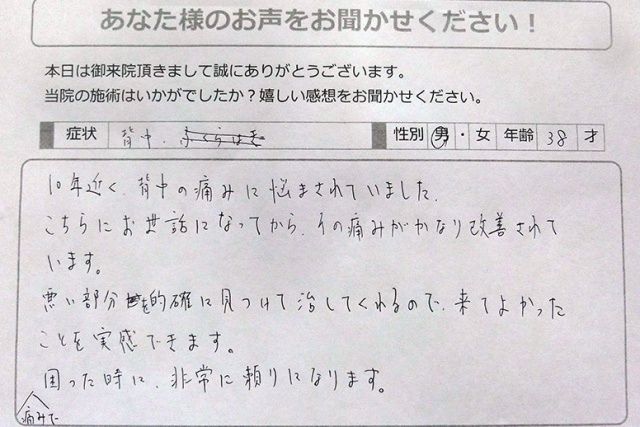 あなた様のお声をお聞かせください！
本日は御来院頂きまして誠にありがとうございます。
当院の施術はいかがでしたか？嬉しい感想をお聞かせください。
症状 背中、ふくらはぎ 性別 男・女 年齢 38 才
10年近く、背中の痛みに悩まされていました。
こちらにお世話になってから、その痛みがかなり改善されて
います。
悪い部分を的確に見つけて治してくれるので、来てよかった
ことを実感できます。
困った時に、非常に頼りになります。
痛みで